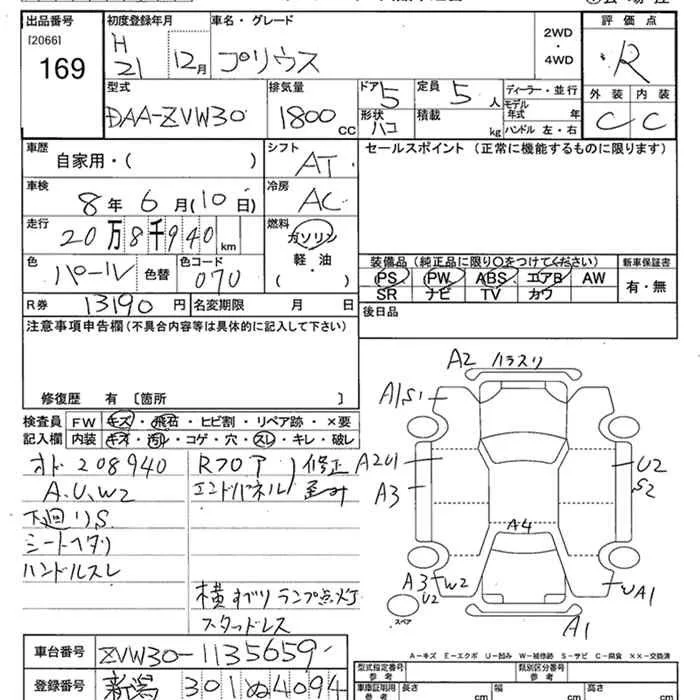 出品番号
[2066]
169
初度登録年月
H
21
12月
車名・グレード
プリウス
2WD
・
4WD
評価点
R
外装 内装
C C
型式
DAA-ZVW30
排気量
1800
CC
ドア
5
形状
ハコ
定員
5
人
積載
kg
ディーラー・並行
モデル
年式 年
ハンドル 左・右
車歴
自家用・( )
シフト
AT
セールスポイント (正常に機能するものに限ります)
車検
8年 6月(10日)
冷房
AC
走行
20万8千940
km
燃料
ガソリン
軽・油
( )
色
パール
色替
色コード
070
装備品(純正品に限り○をつけてください)
PS PW ABS エアB AW
SR ナビ TV カワ
新車保証書
有・無
R券 13190 円
名変期限 月 日
後日品
注意事項申告欄(不具合内容等は具体的に記入して下さい)
修復歴 有 〔箇所 〕
検査員
記入欄
FW キズ・飛石・ヒビ割・リペア跡・×要
内装 キズ・汚レ・コゲ・穴・スレ・キレ・破レ
オド 208940
A.U.W2
下廻リS
シートヘタリ
ハンドルスレ
Rフロア
エンドパネル
修正
歪み
横すべりランプ点灯
スタッドレス
A2
A1S1
A2U1
A3
A4
U2
S2
A3 W2
U2
スペア
UA1
A1
A-キズ E-エクボ U-凹み W-補修跡 S-サビ C-腐食 XX-交換済
車台番号
ZVW30-1135659
登録番号
新潟 301 ぬ4094
型式指定番号
参考
類別区分番号
参考
車庫証明用
参考
長さ
cm
幅
cm
高さ
cm